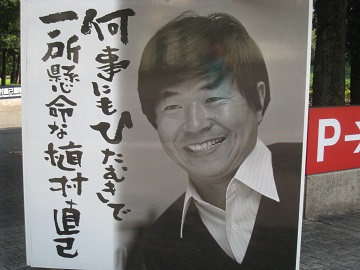 何事にもひたむきで
一所懸命な植村直己
P→